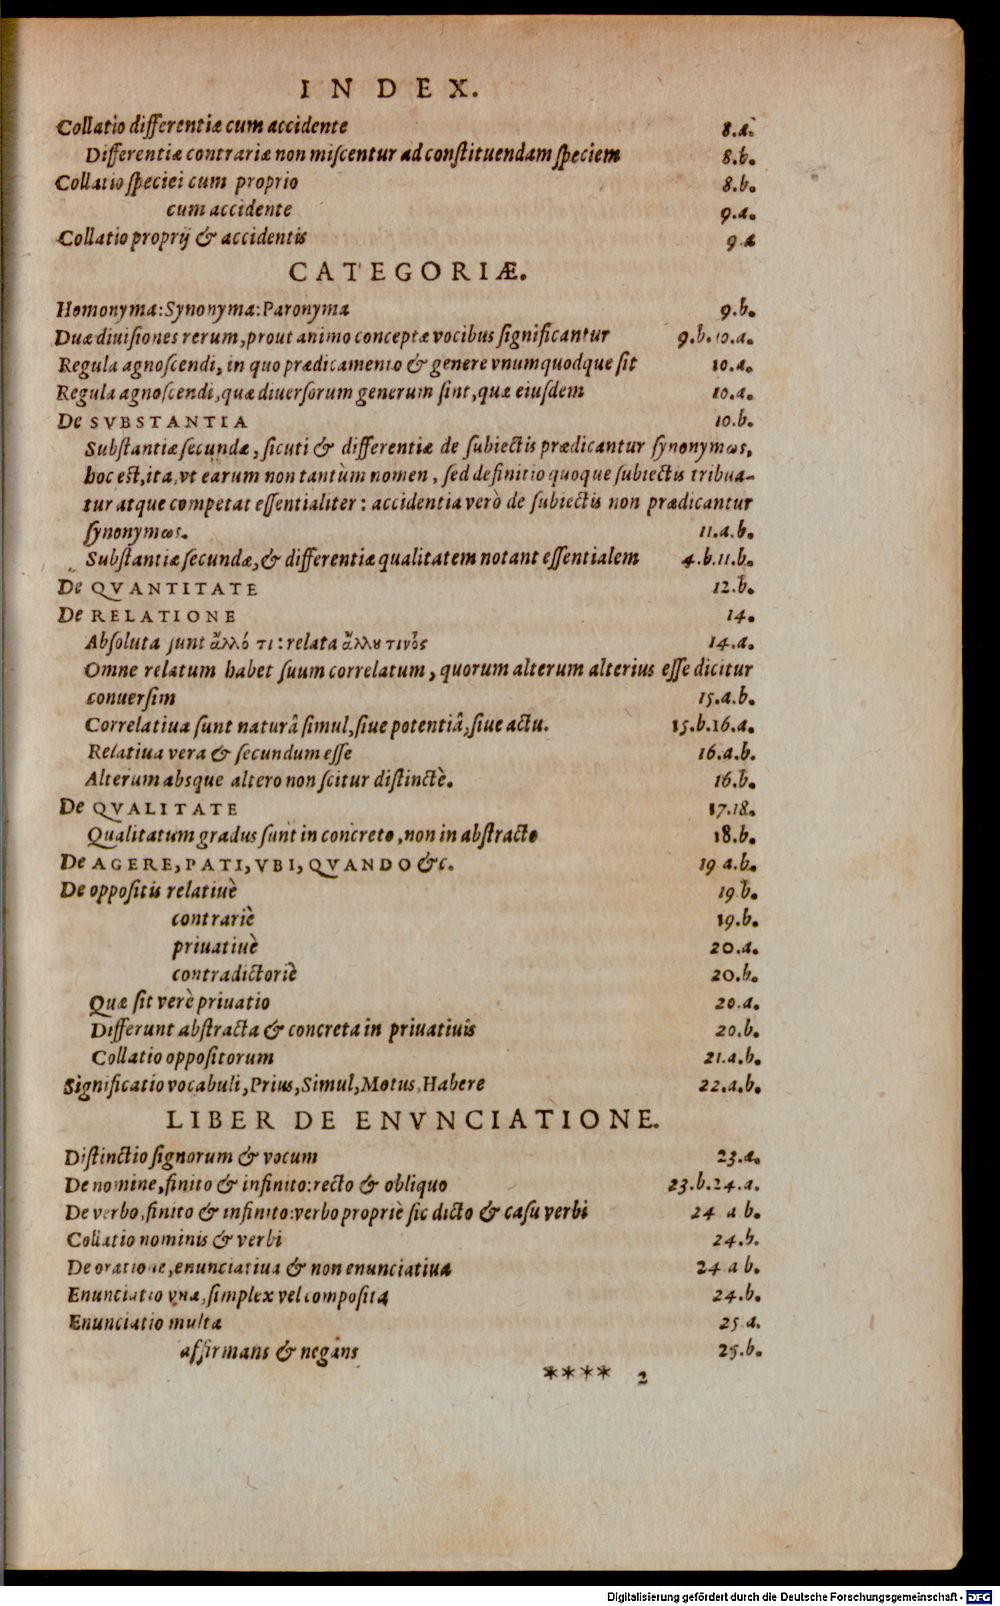 INDEX.
Collatio differentiæ cum accidente 8.a.
Differentiæ contrariæ non miscentur ad constituendam speciem 8.b.
Collatio speciei cum proprio 8.b.
cum accidente 9.a.
Collatio proprij & accidentis 9 a
CATEGORIÆ.
Homonyma: Synonyma: Paronyma 9.b.
Duæ diuisiones rerum, prout animo conceptæ vocibus significantur 9.b.10.a.
Regula agnoscendi, in quo prædicamento & genere vnumquodque sit 10.a.
Regula agnoscendi, quæ diuersorum generum sint, quæ eiusdem 10.a.
De SVBSTANTIA 10.b.
Substantiæ secundæ, sicuti & differentiæ de subiectis prædicantur synonymως,
hoc est, ita, vt earum non tantùm nomen, sed definitio quoque subiectis tribua-
tur atque competat essentialiter: accidentia verò de subiectis non prædicantur
synonymως. 11.a.b.
Substantiæ secundæ, & differentiæ qualitatem notant essentialem 4.b.11.b.
De QVANTITATE 12.b.
De RELATIONE 14.
Absoluta sunt ἄλλό τι: relata ἄλλȣ τινὸς 14.a.
Omne relatum habet suum correlatum, quorum alterum alterius esse dicitur
conuersim 15.a.b.
Correlatiua sunt naturâ simul, siue potentiâ, siue actu. 15.b.16.a.
Relatiua vera & secundum esse 16.a.b.
Alterum absque altero non scitur distinctè. 16.b.
De QVALITATE 17.18.
Qualitatum gradus sunt in concreto, non in abstracto 18.b.
De AGERE, PATI, VBI, QVANDO &c. 19 a.b.
De oppositis relatiuè 19.b.
contrariè 19.b.
priuatiuè 20.a.
contradictoriè 20.b.
Quæ sit verè priuatio 20.a.
Differunt abstracta & concreta in priuatiuis 20.b.
Collatio oppositorum 21.a.b.
Significatio vocabuli, Prius, Simul, Motus, Habere 22.a.b.
LIBER DE ENVNCIATIONE.
Distinctio signorum & vocum 23.a.
De nomine, finito & infinito: recto & obliquo 23.b.24.a.
De verbo, finito & infinito: verbo propriè sic dicto & casu verbi 24 a b.
Collatio nominis & verbi 24.b.
De oratione, enunciatiua & non enunciatiua 24 a b.
Enunciatio vna, simplex vel composita 24.b.
Enunciatio multa 25 a.
affirmans & negans 25.b.
**** 2
Digitalisierung gefördert durch die Deutsche Forschungsgemeinschaft - DFG